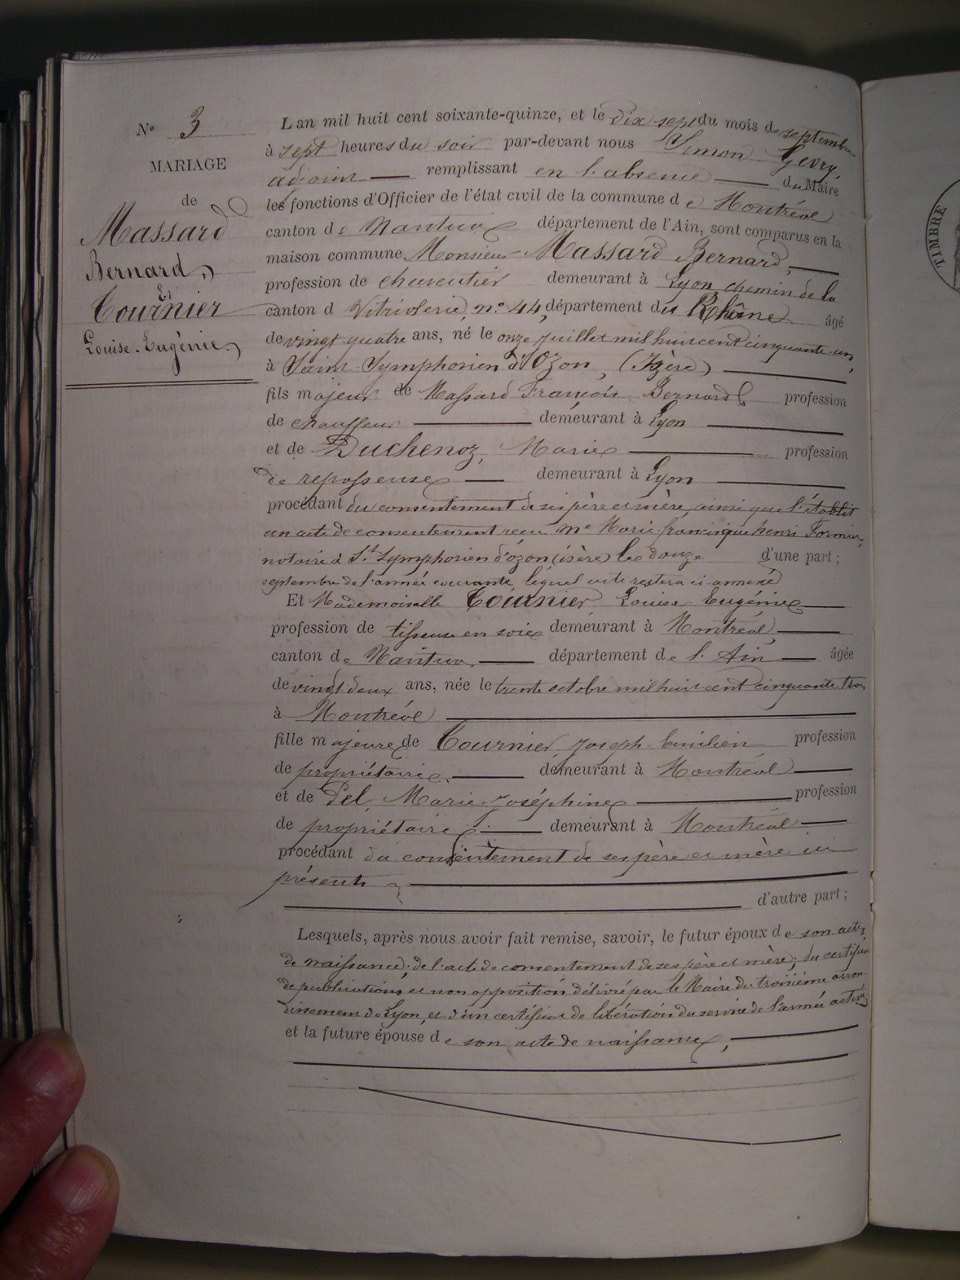 N° 3
MARIAGE
de
Massard
Bernard,
Et
Tournier
Louise-Eugénie
L'an mil huit cent soixante-quinze, et le dix sept du mois de septembre
à sept heures du soir par-devant nous Simon Gevry,
adjoint remplissant en l'absence du Maire
les fonctions d'Officier de l'état civil de la commune de Montréal
canton de Nantua département de l'Ain, sont comparus en la
maison commune Monsieur Massard Bernard,
profession de charcutier demeurant à Lyon chemin de la
canton d Vitriolerie, n° 44, département du Rhône âgé
de vingt quatre ans, né le onze juillet mil huit cent cinquante un,
à Saint Symphorien d'Ozon, (Isère)
fils majeur de Massard François Bernard profession
de chauffeur demeurant à Lyon
et de Duchenoz, Marie profession
de repasseuse demeurant à Lyon
procédant du consentement de ses père et mère ainsi que l'établit
un acte de consentement recu Me Marie francisque henri
notaire à St Symphorien d'ozon (isère) le douze d'une part ;
septembre de l'année courante, lequel acte restera ci annexé
Et Mademoiselle Tournier Louise Eugénie
profession de tisseuse en soie demeurant à Montréal,
canton de Nantua, département de l'Ain âgée
de vingt deux ans, née le trente octobre mil huit cent cinquante trois
à Montréal
fille majeure de Tournier Joseph Emilien profession
de propriétaire, demeurant à Montréal
et de Pel, Marie Joséphine profession
de propriétaire demeurant à Montréal
procédant du consentement de ses père et mère ici
présents
d'autre part ;
Lesquels, après nous avoir fait remise, savoir, le futur époux de son acte
de naissance, de l'acte de consentement de ses père et mère, du certificat
de publications et non opposition délivré par le Maire du troisième arron-
dissement de Lyon, et d'un certificat de libération du service de l'armée active,
et la future épouse de son acte de naissance,
TIMBRE